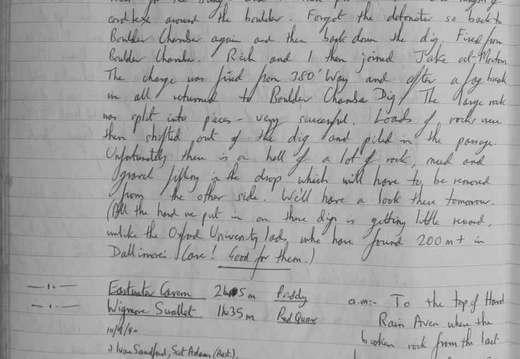 cordtex around the boulder. Forgot the detonator so back to
Boulder Chamber again and then back down the dig. Fired from
Boulder Chamber. Rich and I then joined Jake at Morton
The charge was fired from 380' Way and after a fag break
we all returned to Boulder Chamber Dig. The large rock
was split into pieces - very successful. Loads of rocks were
then shifted out of the dig and piled in the passage.
Unfortunately there is a hell of a lot of rock, mud and
gravel filling in the drop which will have to be removed
from the other side. We'll have a look there tomorrow.
(All the hard we put in on these digs is getting little reward,
unlike the Oxford University lads, who have found 200m+ in
Dallimores Cave! Good for them.)
Eastwater Cavern 2hr 5m Priddy
Wigmore Swallet 1hr 35m Red Quar
a.m:- To the top of Hard
Rain Aven where the
broken rock from the last